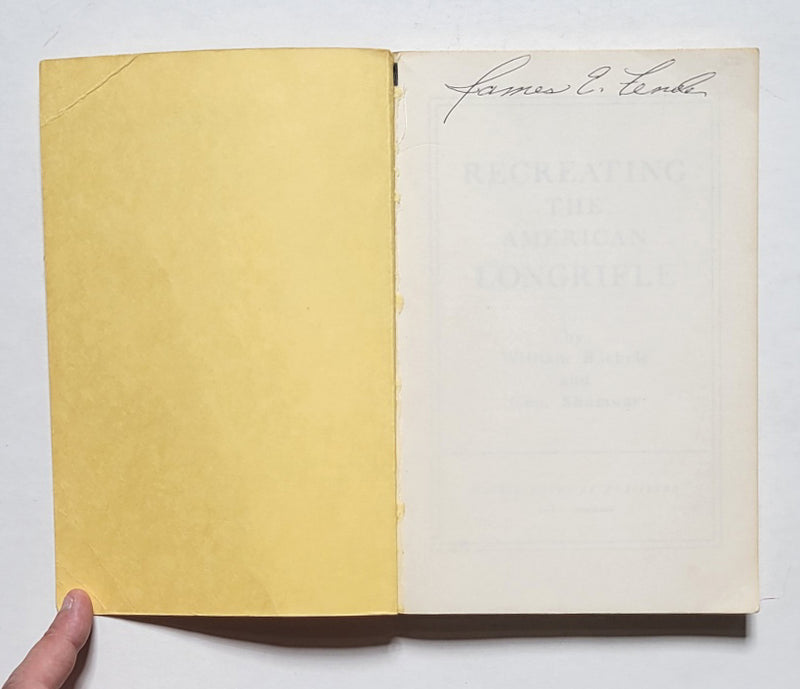 James E. Fender
RECREATING
THE
AMERICAN
LONGRIFLE
by
William Buchele
and
Geo. Shumway